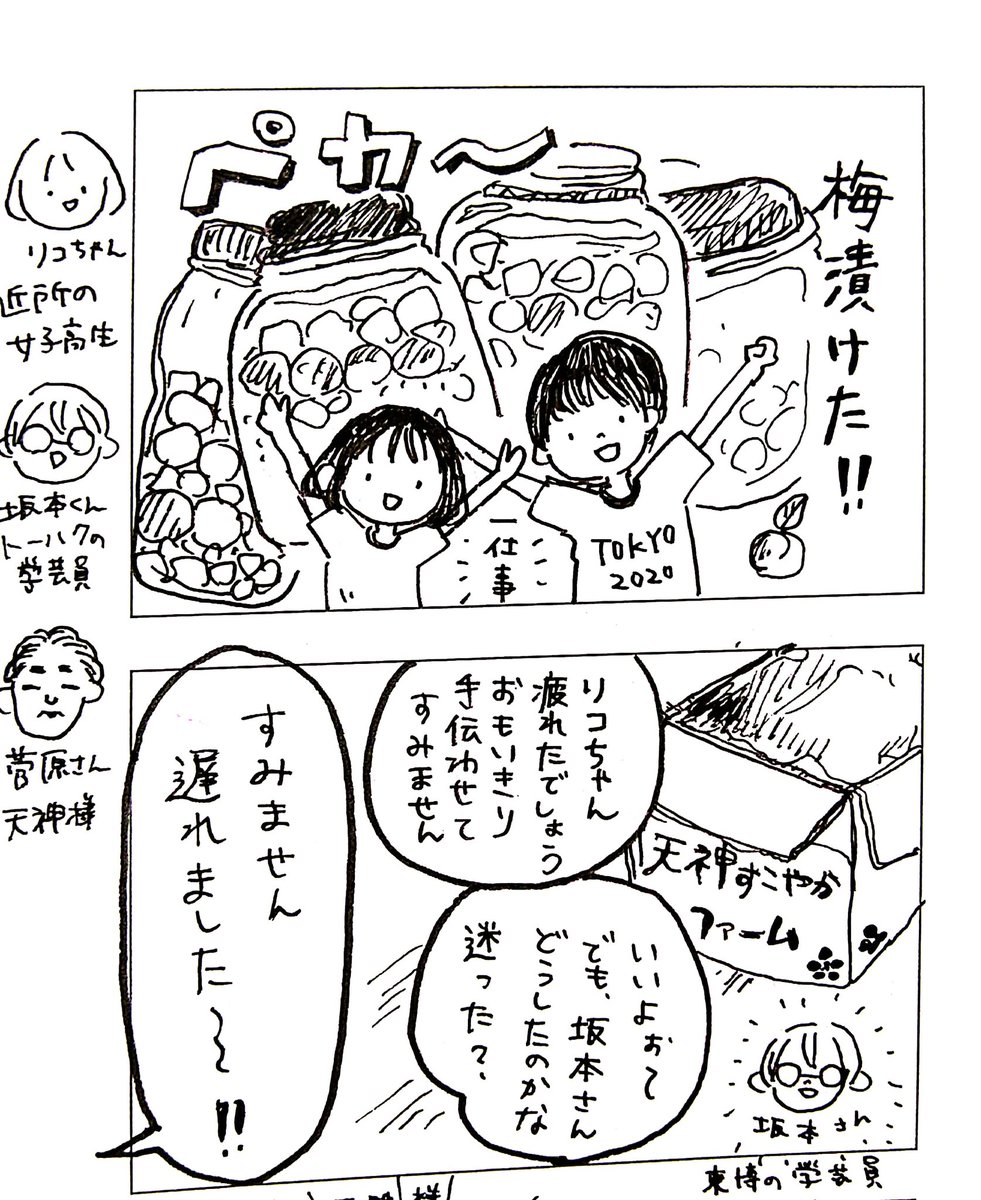 梅漬けた!!
ペカ〜
一仕事
TOKYO
2020
リコちゃん
近所の
女子高生
坂本くん
トーハクの
学芸員
菅原さん
天神様
リコちゃん
疲れたでしょう
おもいきり
手伝わせて
すみません
天神すこやか
ファーム
いいよぉ〜
でも、坂本さん
どうしたのかな
迷った?
坂本さん
東博の学芸員
すみません
遅れました〜!!